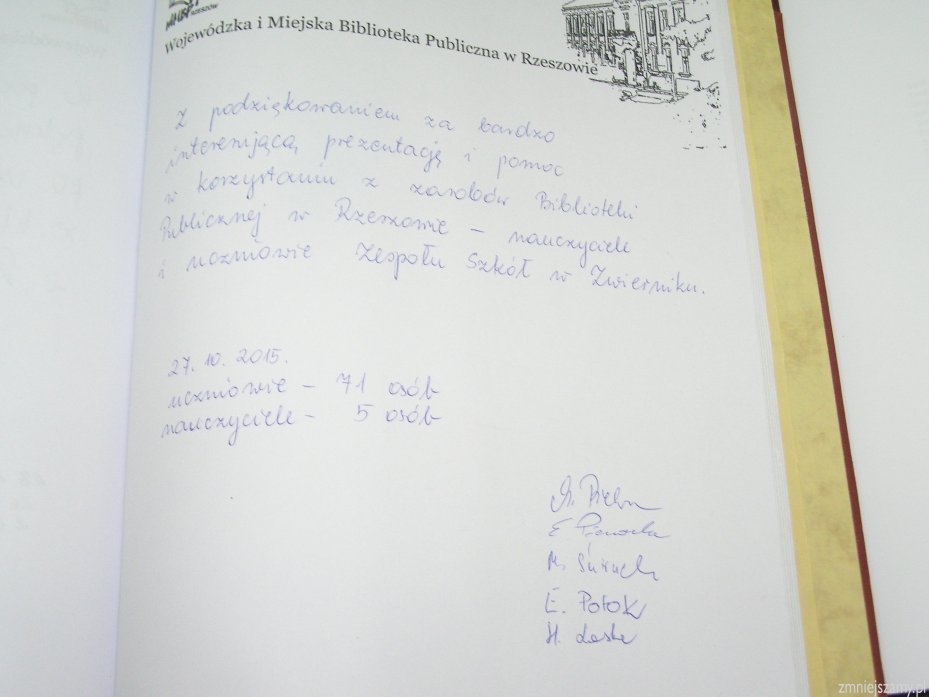 RZESZÓW
Wojewódzka i Miejska Biblioteka Publiczna w Rzeszowie
Z podziękowaniem za bardzo
interesującą prezentację i pomoc
w korzystaniu z zasobów Biblioteki
Publicznej w Rzeszowie – nauczyciele
i uczniowie Zespołu Szkół w Zwierniku.
27. 10. 2015.
uczniowie – 71 osób
nauczyciele – 5 osób
E.
M.
E. Potok
H.
zmniejszamy.pl